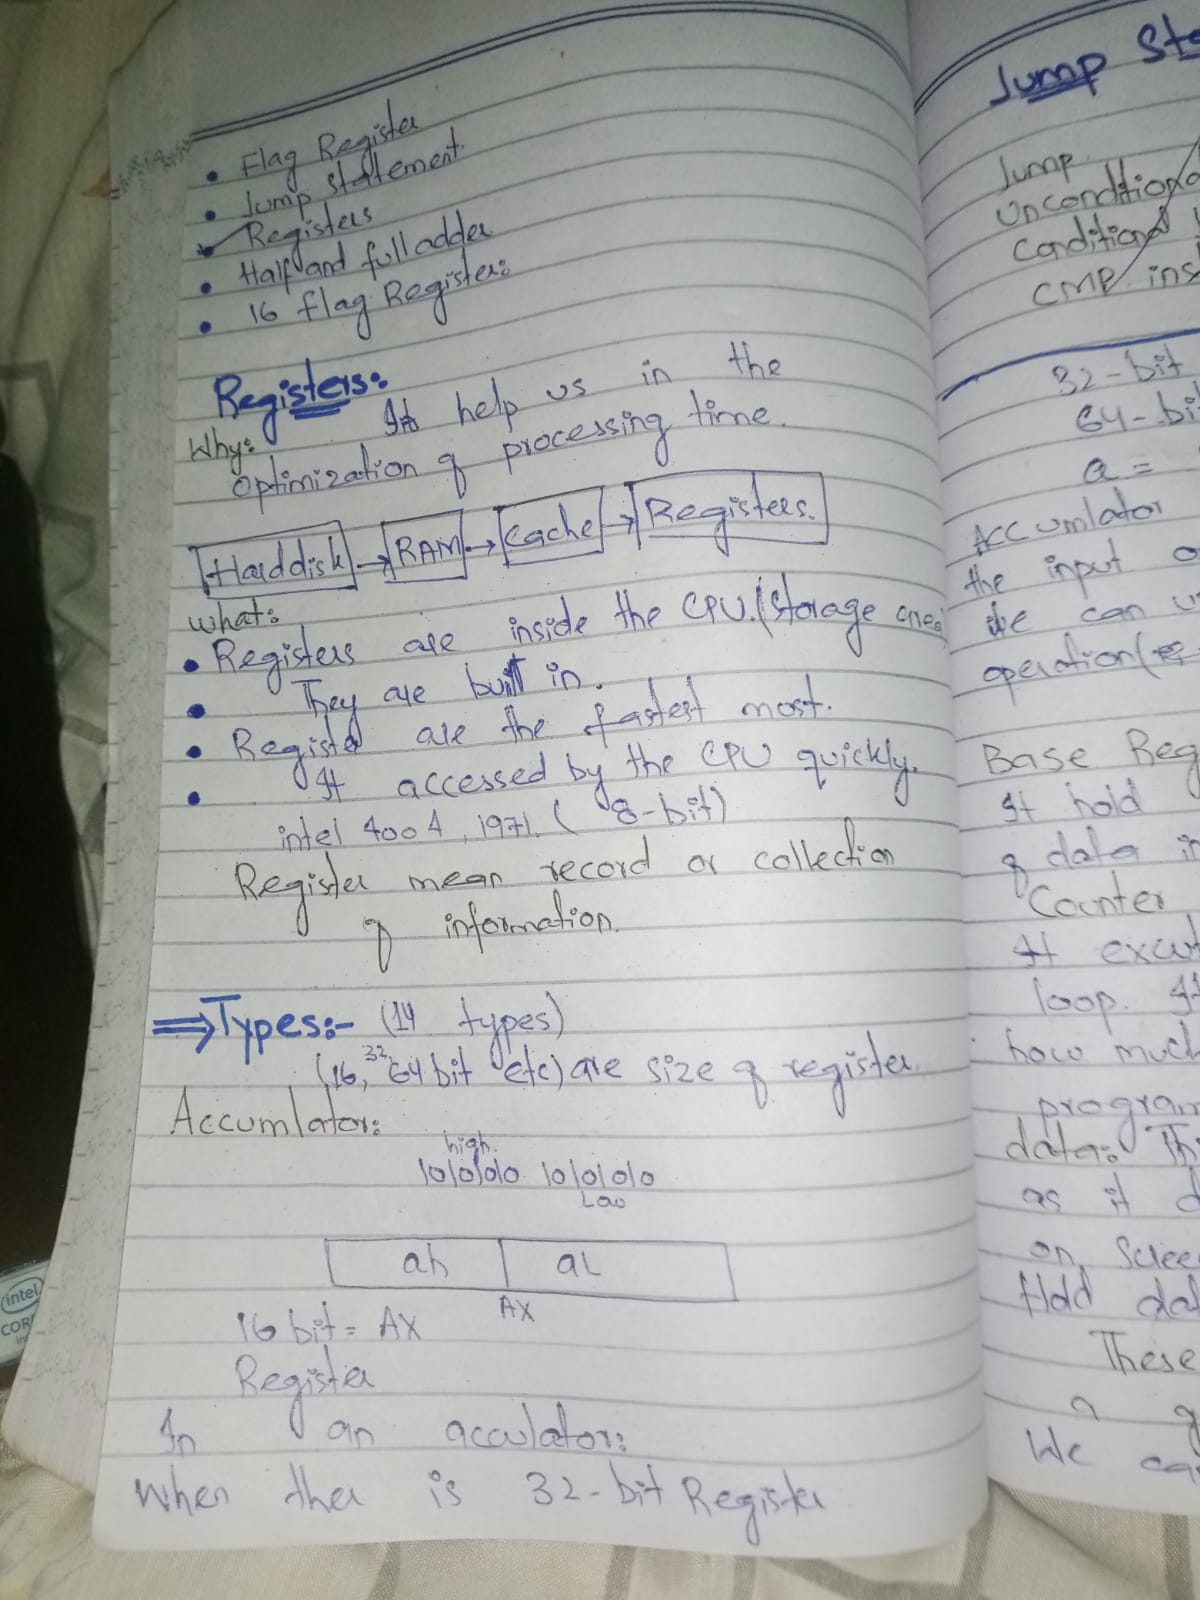 Flag Register
Jump statement.
Registers
Half and full adder
16 flag Register:
Registers:
Why: It help us in the
optimization of processing time.
Harddisk → RAM → Cache → Registers.
what:
Registers are inside the CPU. (storage area)
They are built in.
Register are the fastest most.
It accessed by the CPU quickly.
intel 4004, 1971. (8-bit)
Register mean record or collection
of information.
⇒ Types:- (14 types)
(16, 32, 64 bit etc) are size of register.
Accumlator:
high
Low
ah al
AX
16 bit = AX
Register
In an
when ther is 32-bit Register
Jump
Jump
unconditiona
Conditional
CMP ins
32-bit
64-bi
a =
Accumlator
the input o
we can u
operation(
Base Reg
It hold
of data in
Counter
It excut
loop. It
how much
program
data: Thi
as it d
on Scree
Hold da
These
a g
We ca
intel
COR